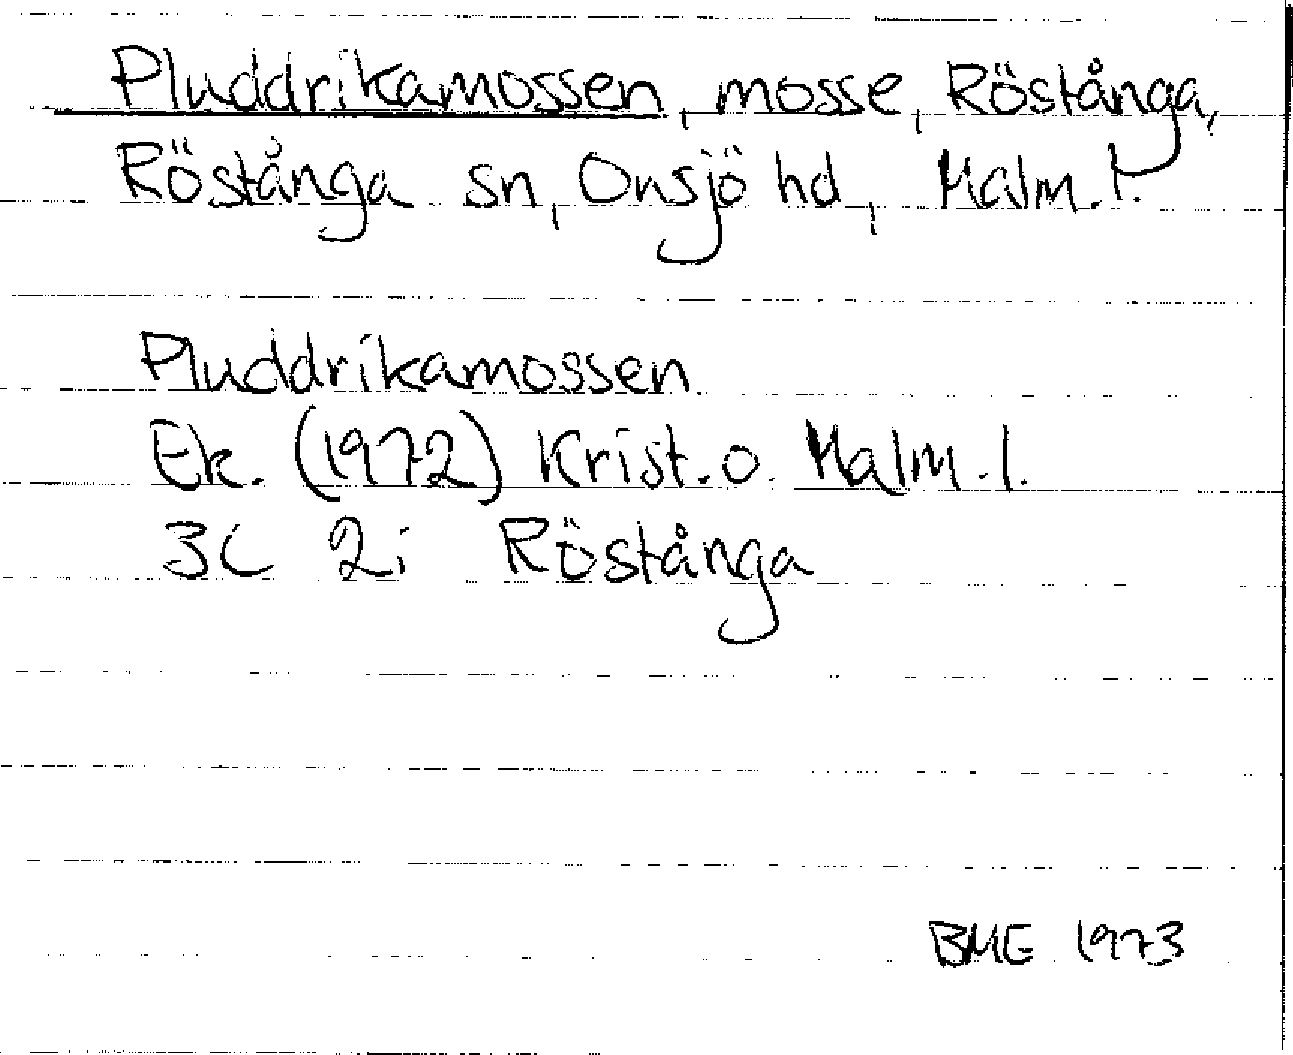 Pluddrikamossen, mosse, Röstånga,
Röstånga sn, Onsjö hd, Malm.l.
Pluddrikamossen
Ek. (1972) Krist. o. Malm.l.
3C 2i Röstånga
BME 1973